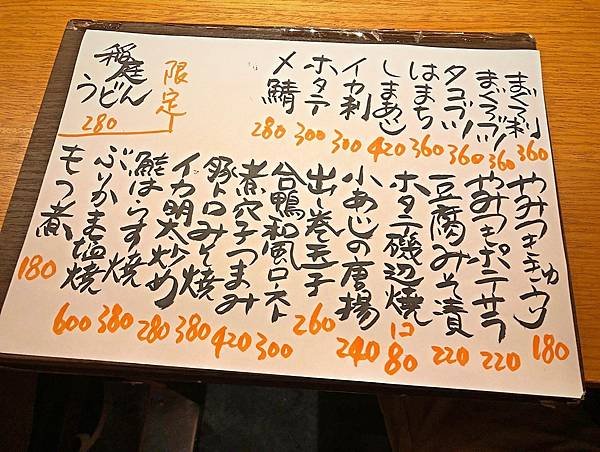 まぐろ刺 360
まぐろブツ 360
タコブツ 360
はまち 360
しまあじ 420
イカ刺 300
ホタテ 300
〆鯖 280
限定
稲庭
うどん
280
やみつきキュウ 180
やみつきポテサラ 220
豆腐みそ漬 220
ホタテ磯辺焼 1コ80
小あじの唐揚 240
出し巻玉子 260
合鴨和風ロースト 300
煮穴子つまみ 420
豚トロみそ焼 380
イカ明太炒め 280
鮭はらす焼 380
ぶりかま塩焼 600
もつ煮 180